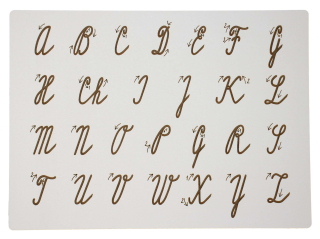 A B C D E F G
H Ch I J K L
M N O P Q R S
T U V W X Y Z